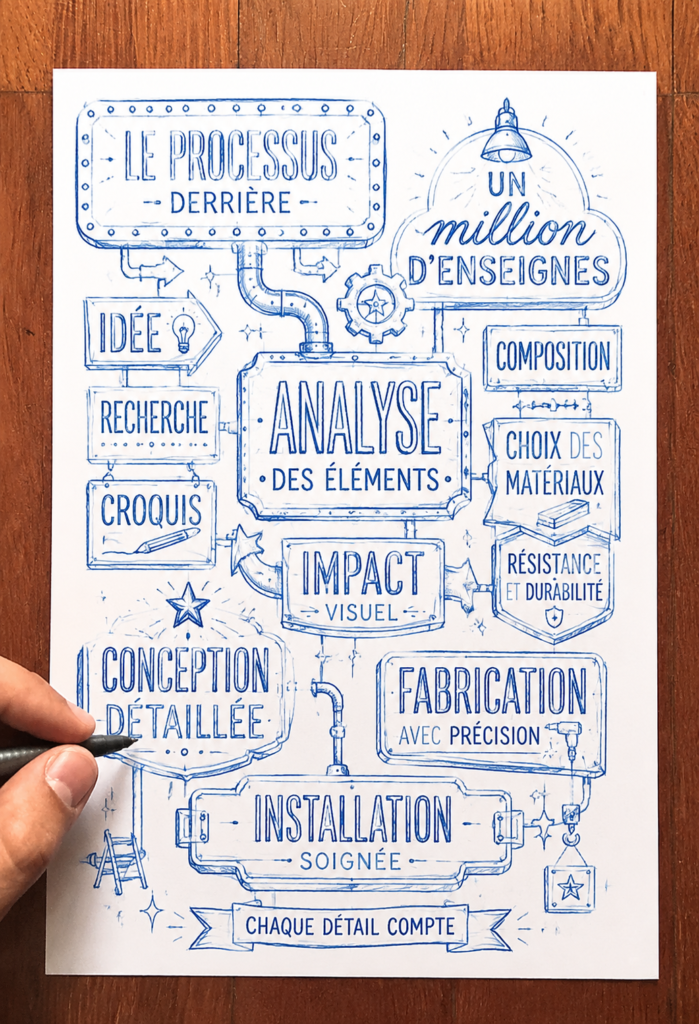 LE PROCESSUS
DERRIÈRE
UN
million
D'ENSEIGNES
IDÉE
RECHERCHE
CROQUIS
ANALYSE
DES ÉLÉMENTS
COMPOSITION
CHOIX DES
MATÉRIAUX
RÉSISTANCE
ET DURABILITÉ
IMPACT
VISUEL
CONCEPTION
DÉTAILLÉE
FABRICATION
AVEC PRÉCISION
INSTALLATION
SOIGNÉE
CHAQUE DÉTAIL COMPTE